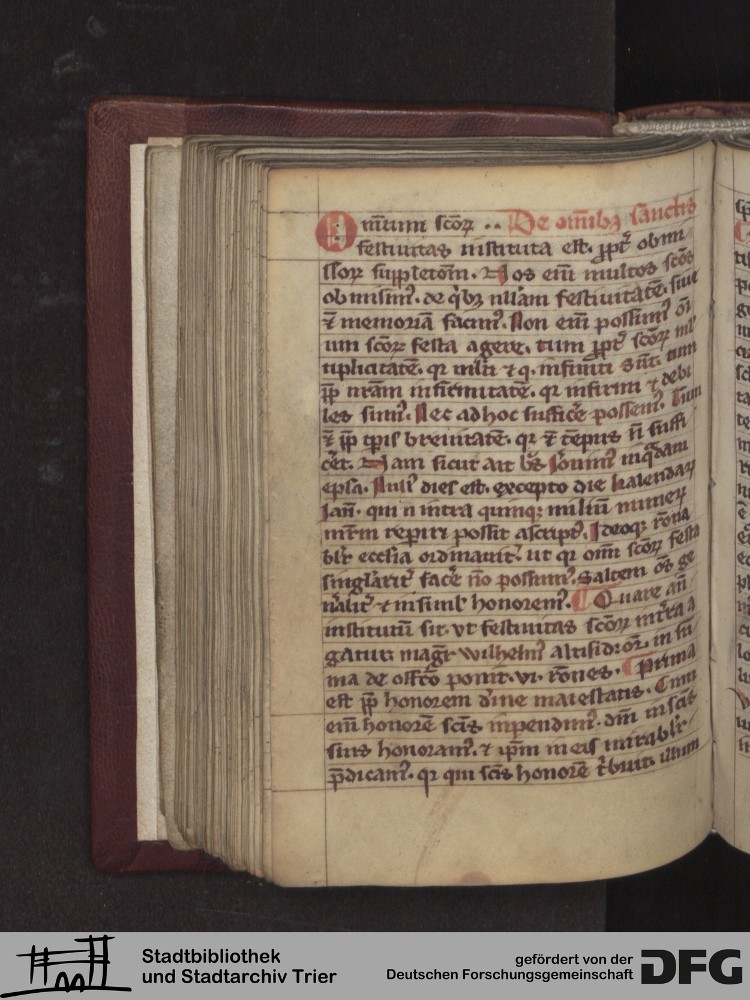 Omnium scoꝝ .. De om̅ibꝫ sanctis
festiuitas instituta est. ꝓpt̉ obmi
ssoꝝ suppletōm. Nos eni̅ multos scōs
obmisim᷒. de q̇bꝫ nullam festiuitatē. siue
⁊ memoriā facim᷒. Non eni̅ possum᷒ oi̅
um scōꝝ festa agere. tum ꝓpt̉ scōꝝ ml̓
tiplicitatē. qꝛ infiniti sūt. tum
ꝓp nr̄am infirmitatē. qꝛ infirmi ⁊ debi
les sum᷒. Nec ad hoc suffic̉e possem᷒. Tum
⁊ ꝓp tp̄is breuitatē. qꝛ ⁊ tēpus n̄ suffi
c̉et. Nam sicut ait
ep̄la. Null᷒ dies est. excepto die kalendaꝝ
Ian̄. qui n̄ intra quinqꝫ miliū numeꝝ
mr̄m reperiri possit ascript᷒. Ideoqꝫ rōna
bl̓r ecclīa ordinauit. ut qꝛ om̅i scōꝝ festa
singl̓arit̉ fac̉e nō possum᷒. Saltem oēs ge
n̉alit̉ ⁊ insiml̓ honorem᷒. Quare aū
institutū sit. vt festiuitas scōꝝ intᵃ a
gatur. magr̄ wilhelm᷒ altisidoꝛ̄. in sū
ma de offīco ponit. vi. rōnes. Prima
est ꝓp honorem diuine maiestatis. Cum
eni̅ honorē scīs inpendim᷒. dm̄ in scīs
suis honoram᷒. ⁊ ip̄m in eis mirabl̓r
p̄dicam᷒. qꝛ qui scīs honorē t̓buit. illum
Stadtbibliothek
und Stadtarchiv Trier
gefördert von der
Deutschen Forschungsgemeinschaft
DFG